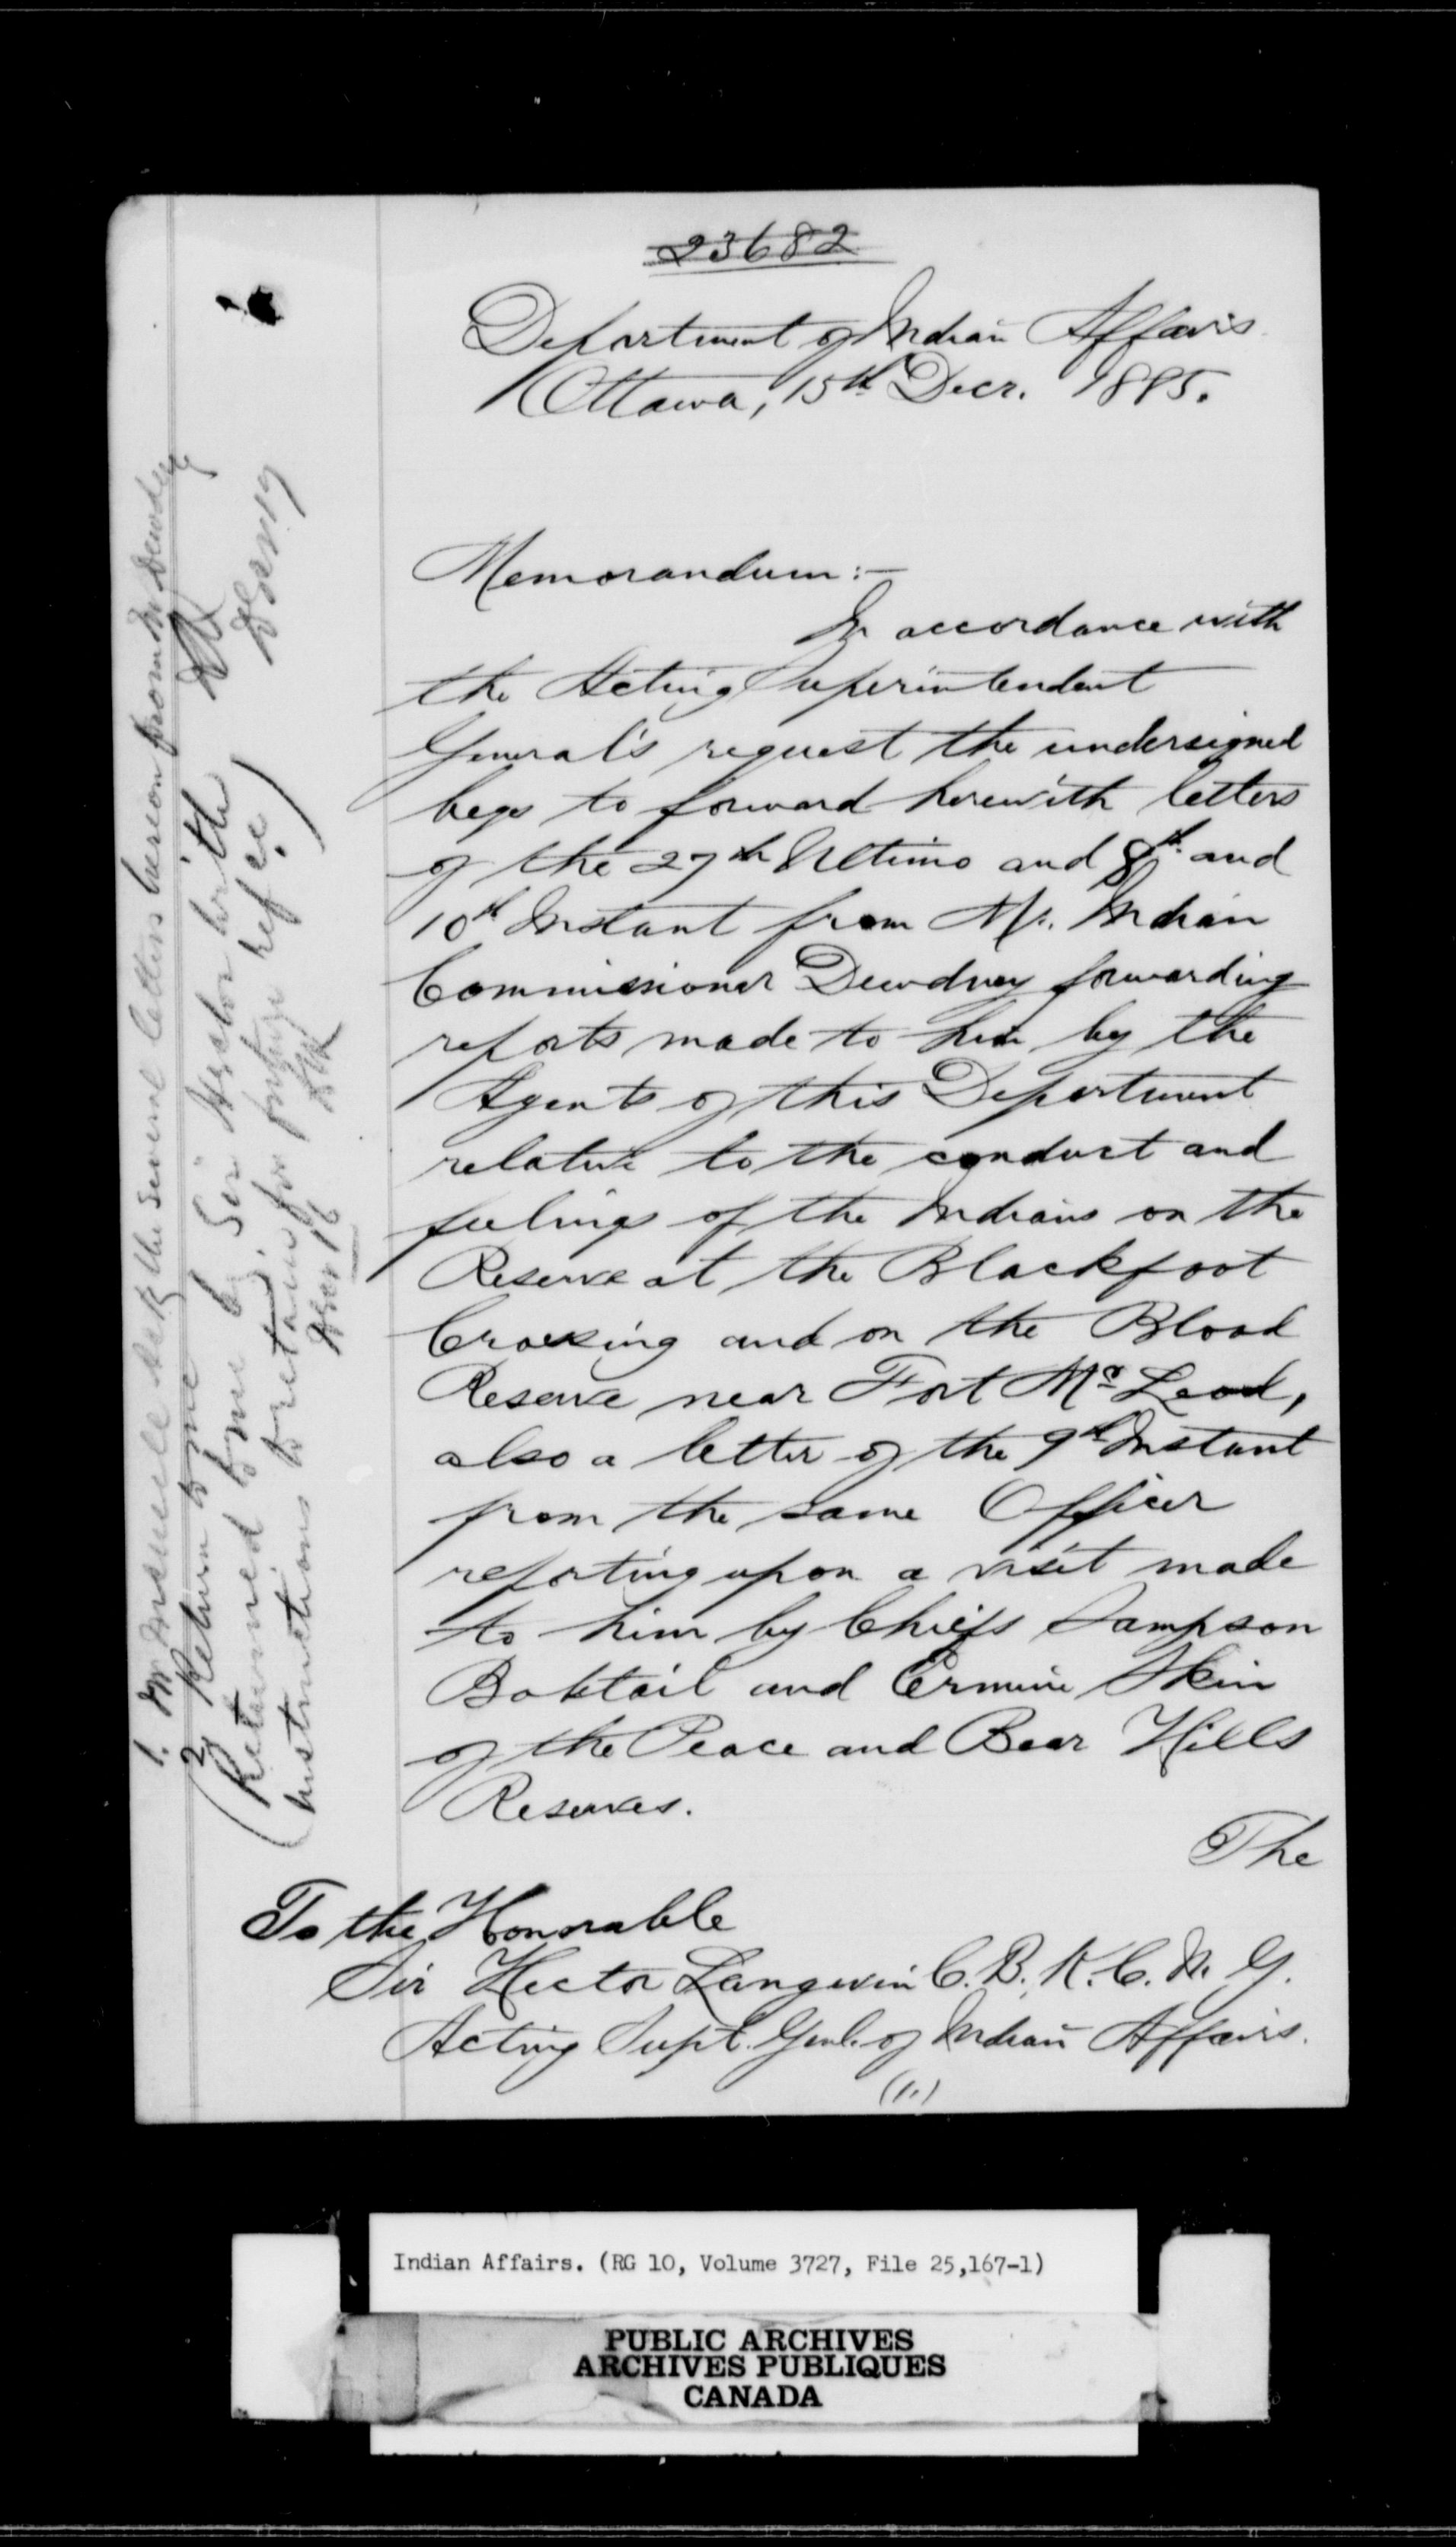 23682
Department of Indian Affairs
Ottawa, 15th Decr. 1885.
Memorandum:-
In accordance with
the Acting Superintendent
General's request the undersigned
begs to forward herewith letters
of the 27th Ultimo and 8th and
10th Instant from Mr. Indian
Commissioner Dewdney forwarding
reports made to him by the
Agents of this Department
relative to the conduct and
feelings of the Indians on the
Reserve at the Blackfoot
Crossing and on the Blood
Reserve near Fort Mc Leod,
also a letter of the 9th Instant
from the same Officer
reporting upon a visit made
to him by Chiefs Sampson
Bobtail and Ermine Skin
of the Peace and Bear Hills
Reserves.
The
To the Honorable
Sir Hector Langevin C.B., K.C.M.G.
Acting Supt. Genl. of Indian Affairs.
(1.)
1. Mr the several letters hereon from Mr Dewdney
2 Return to me
(Returned to me by Sir Hector with
instructions to retain for future refce.)
Decr 16
Indian Affairs. (RG 10, Volume 3727, File 25,167-1)
PUBLIC ARCHIVES
ARCHIVES PUBLIQUES
CANADA